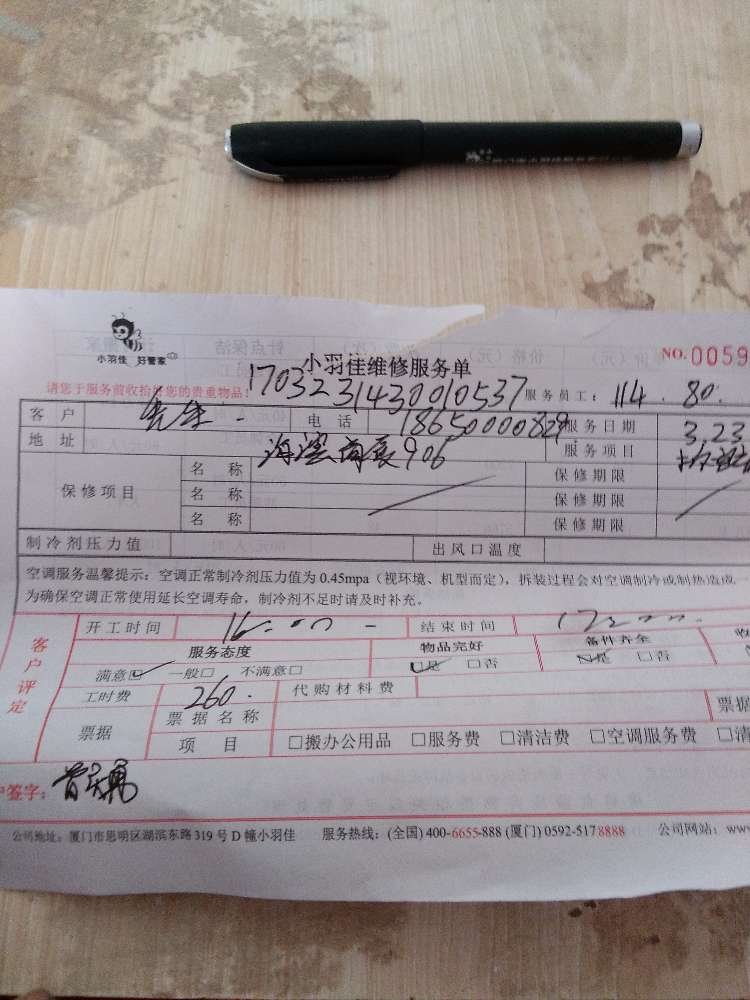 小羽佳 好管家
小羽佳维修服务单
NO. 0059
请您于服务前收拾好您的贵重物品!
1703231430010537
服务员工: 114. 80.
客 户 先生 电 话 18650000829 服务日期 3.23
地 址 906 服务项目
保修项目 名 称 保修期限
名 称 保修期限
名 称 保修期限
制冷剂压力值 出风口温度
空调服务温馨提示:空调正常制冷剂压力值为 0.45mpa(视环境、机型而定),拆装过程会对空调制冷或制热造成
为确保空调正常使用延长空调寿命,制冷剂不足时请及时补充。
客户评定
开工时间 16:00 结束时间 17:00
服务态度 物品完好 备件齐全 收
满意☑ 一般□ 不满意□ ☑是 □否 ☑是 □否
工时费 260. 代购材料费
票据 票据名称 票据
项 目 □搬办公用品 □服务费 □清洁费 □空调服务费 □清
户签字:
公司地址:厦门市思明区湖滨东路 319 号 D 幢小羽佳 服务热线:(全国) 400-6655-888 (厦门) 0592-5178888 公司网站:www